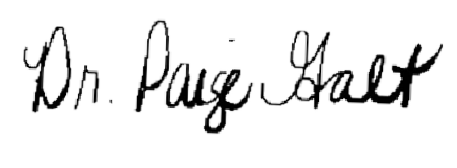 Dr. Paige Galt